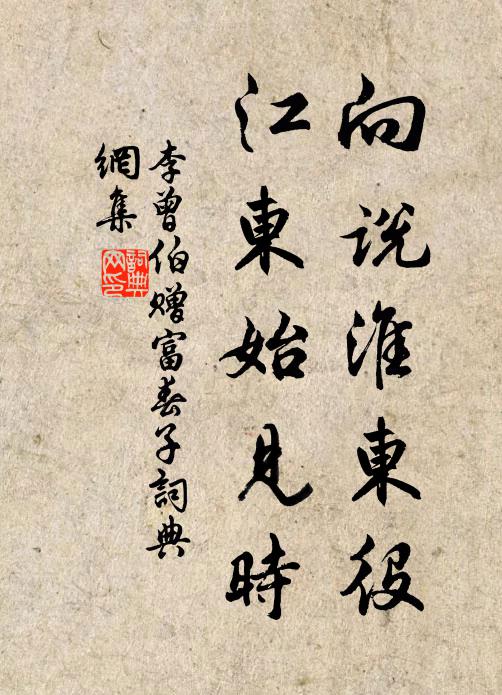 向說淮東役
江東始見時
李曾伯贈富春子詞典
網集
詞典
网印